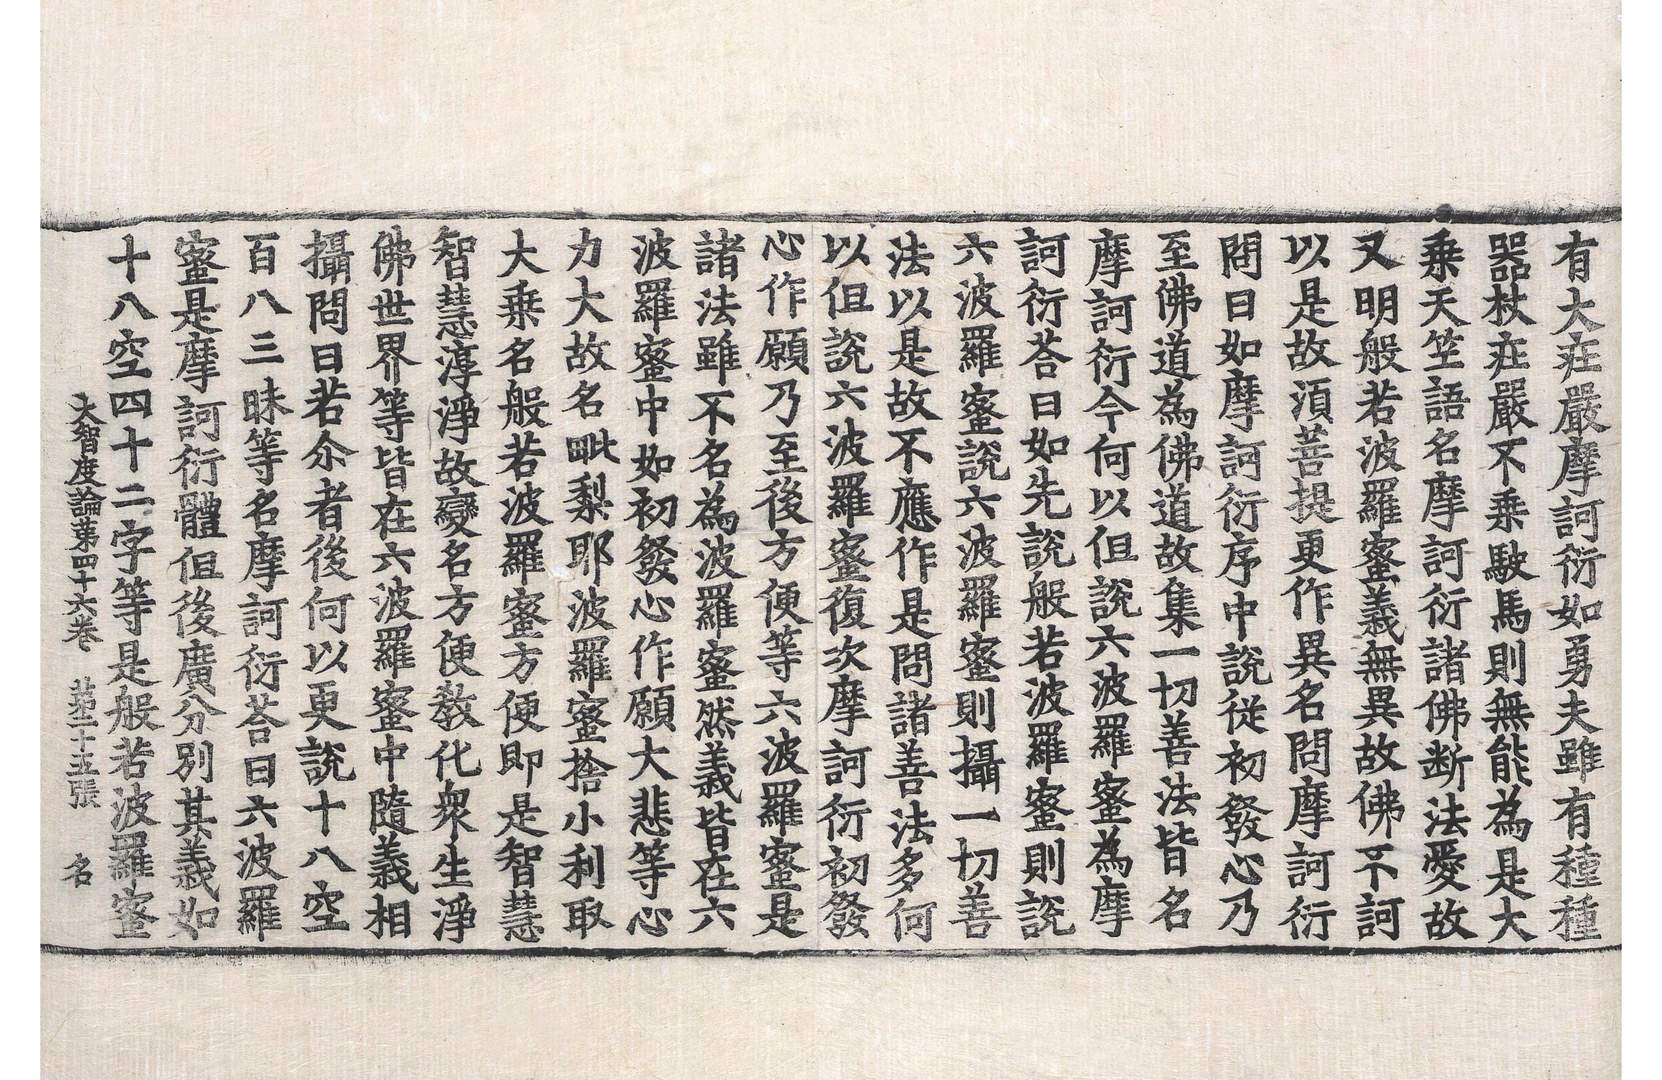 有大㽵嚴摩訶衍如勇夫雖有種種
器杖㽵嚴不乘駛馬則無能為是大
乘天竺語名摩訶衍諸佛断法愛故
又明般若波羅蜜義無異故佛不訶
以是故湏菩提更作異名問摩訶衍
問曰如摩訶衍序中說從初發心乃
至佛道為佛道故集一切善法皆名
摩訶衍今何以但說六波羅蜜為摩
訶衍荅曰如先說般若波羅蜜則說
六波羅蜜說六波羅蜜則攝一切善
法以是故不應作是問諸善法多何
以但說六波羅蜜復次摩訶衍初發
心作願乃至後方便等六波羅蜜是
諸法雖不名為波羅蜜然義皆在六
波羅蜜中如初發心作願大悲等心
力大故名毗梨耶波羅蜜捨小利取
大乘名般若波羅蜜方便即是智慧
智慧淳淨故變名方便教化衆生淨
佛世界等皆在六波羅蜜中隨義相
攝問曰若尒者後何以更說十八空
百八三昧等名摩訶衍荅曰六波羅
蜜是摩訶衍體但後廣分別其義如
十八空四十二字等是般若波羅蜜
大智度論苐四十六卷 苐二十五張 名